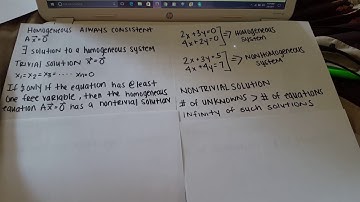 HOMOGENEOUS ALWAYS CONSISTENT
Ax⃗=0⃗
∃ SOLUTION TO A HOMOGENEOUS SYSTEM
TRIVIAL SOLUTION x⃗=0⃗
x₁=x₂=x₃=....xn=0
If & only if the equation has @ least
one free variable, then the homogeneous
equation Ax⃗=0⃗ has a nontrivial solution
2x+3y=0
4x+2y=0 ⇒ HOMOGENEOUS SYSTEM
2x+3y=5
4x+4y=7 ⇒ NONHOMOGENEOUS SYSTEM
NONTRIVIAL SOLUTION
# OF UNKNOWNS > # OF equations
infinity of such solutions